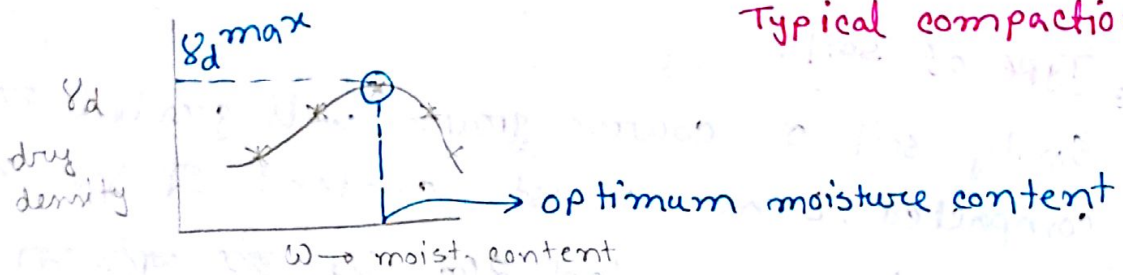 Typical compactio
γd max
γd
dry
density
optimum moisture content
ω→ moist. content